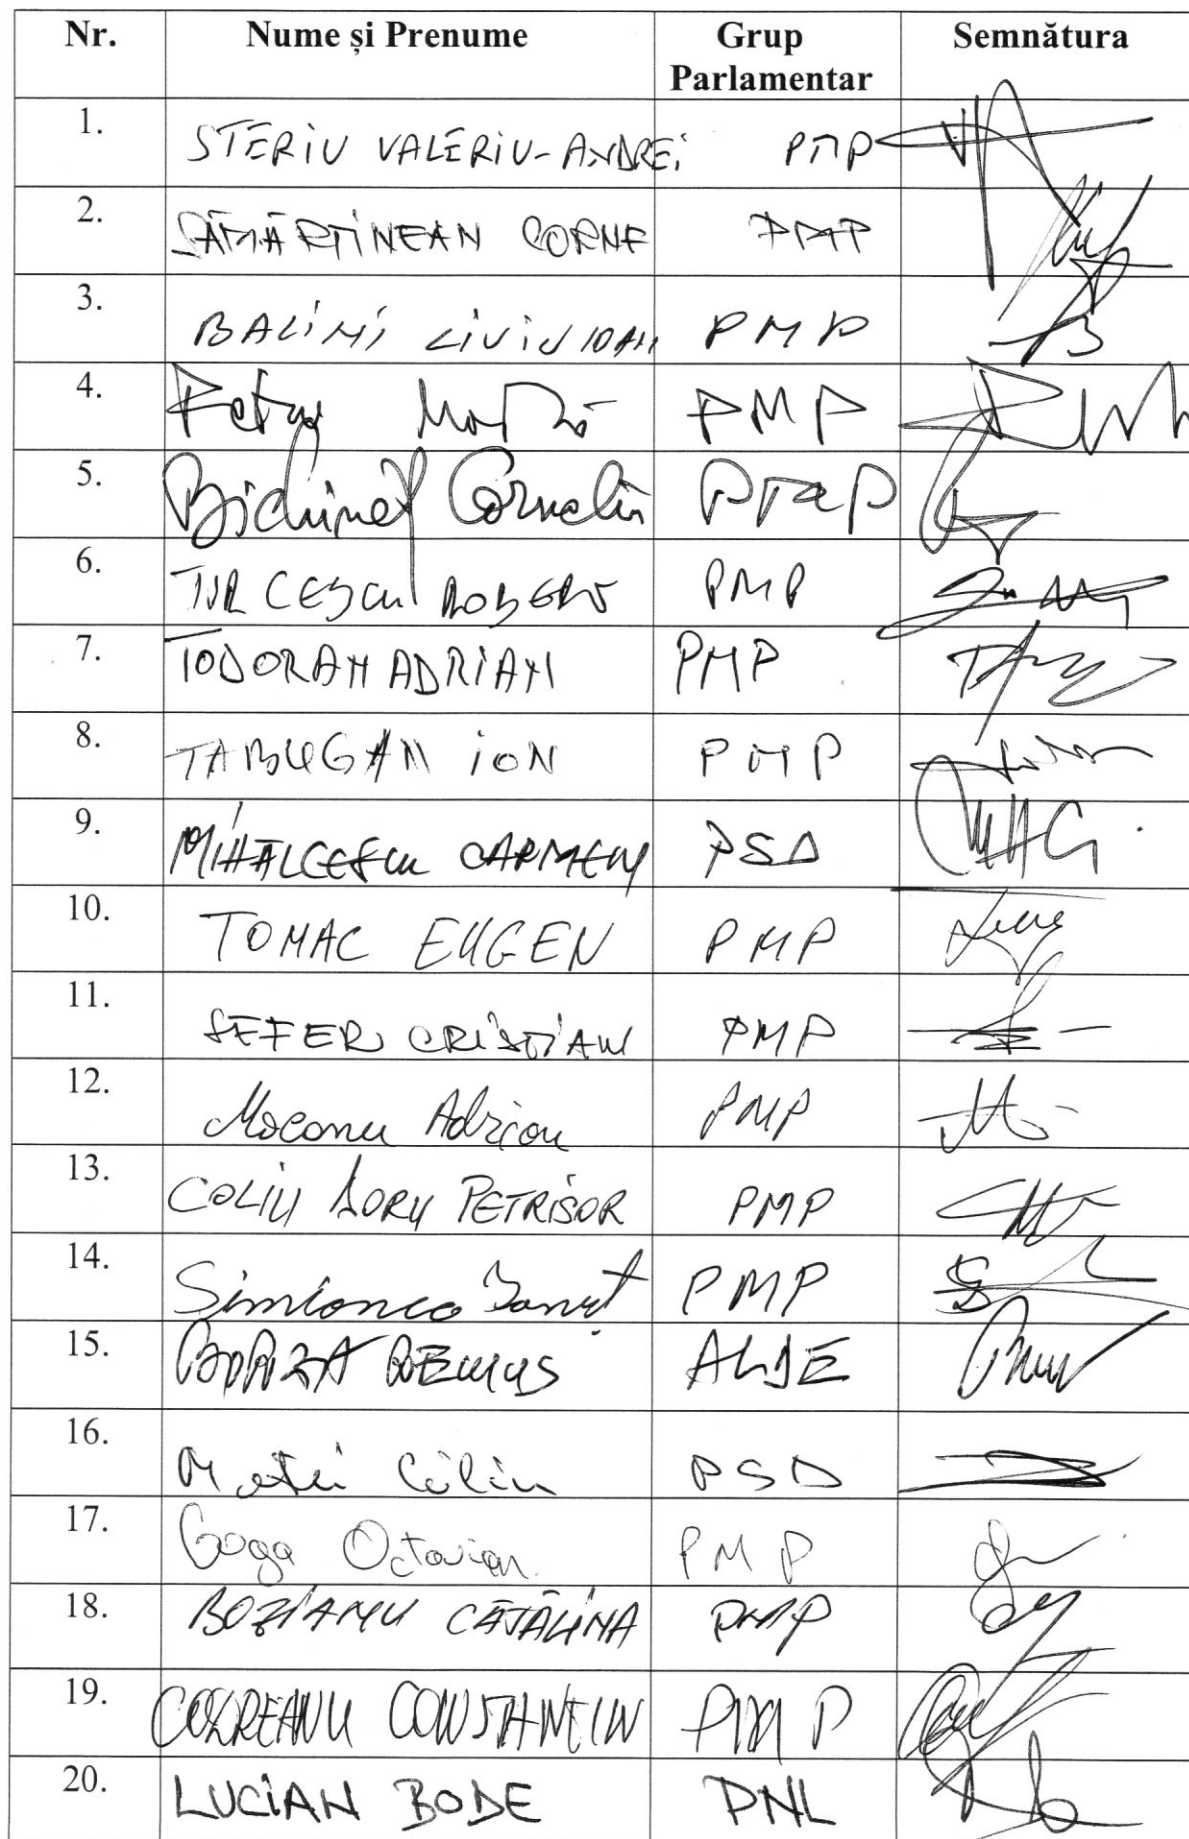 Nr. Nume și Prenume Grup Parlamentar Semnătura
1. STERIU VALERIU-ANDREI PMP
2. SĂMĂRTINEAN CORNE PMP
3. BALINI LIVIU IOAN PMP
4. Petru Movilă PMP
5. Bichineț Corneliu PMP
6. TURCESCU ROBERT PMP
7. TODORAN ADRIAN PMP
8. TABUGAN ION PMP
9. MIHĂLCESCU CARMEN PSD
10. TOMAC EUGEN PMP
11. SEFER CRISTIAN PMP
12. Mocanu Adrian PMP
13. COLIU DORU PETRISOR PMP
14. Simionca Ionuț PMP
15. BORZA REMUS ALDE
16. Matei Călin PSD
17. Goga Octavian PMP
18. BOZIANU CĂTĂLINA PMP
19. CODREANU CONSTANTIN PMP
20. LUCIAN BODE PNL